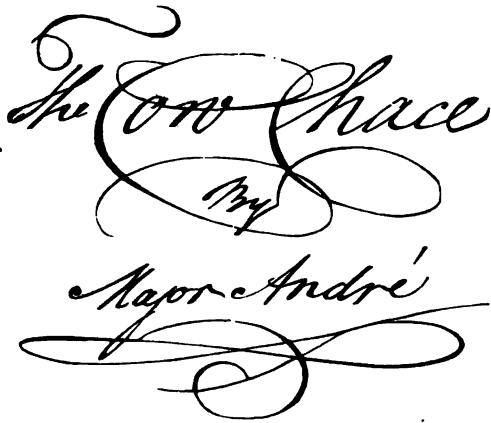 The Cow Chace
By
Major André